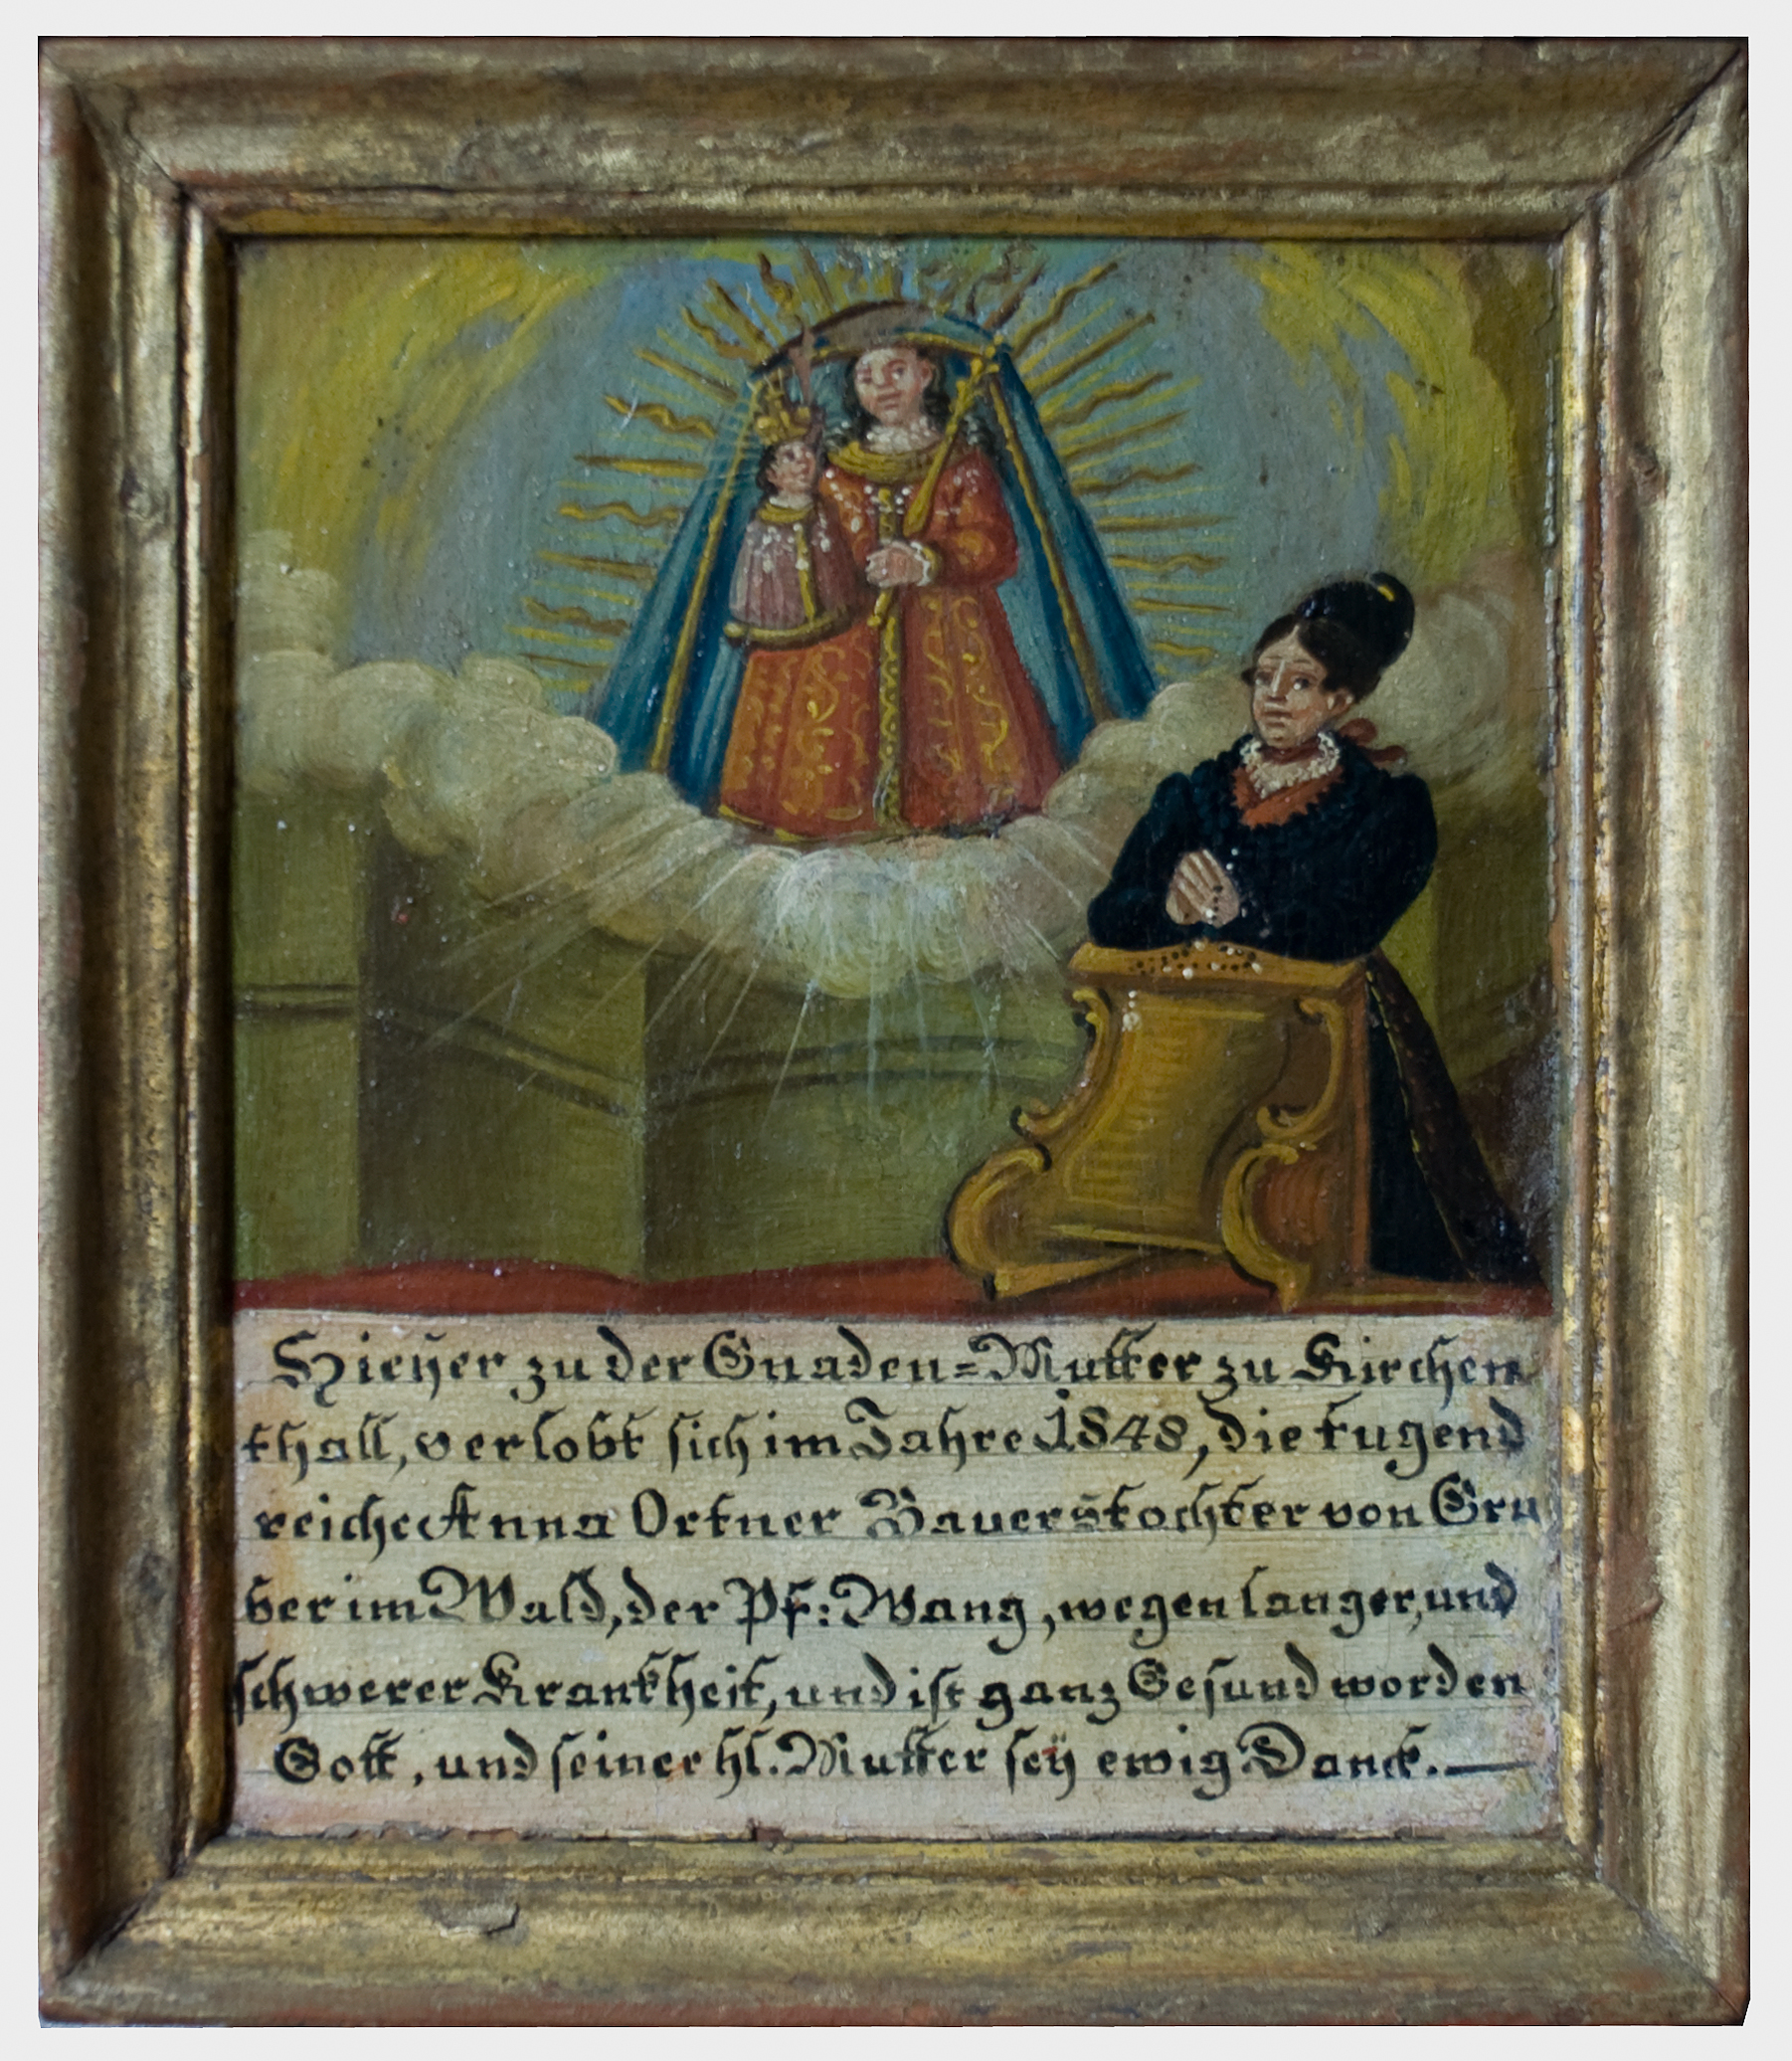 Hieÿer zu der Gnaden=Mutter zu Kirchen
thall, verlobt sich im Jahre 1848, die tugend
reiche Anna Ortner Bauerstochter von Gru
ber im Wald, der Pf: Wang, wegen langer, und
schwerer Krankheit, und ist ganz Gesund worden
Gott, und seiner hl. Mutter seÿ ewig Danck.—